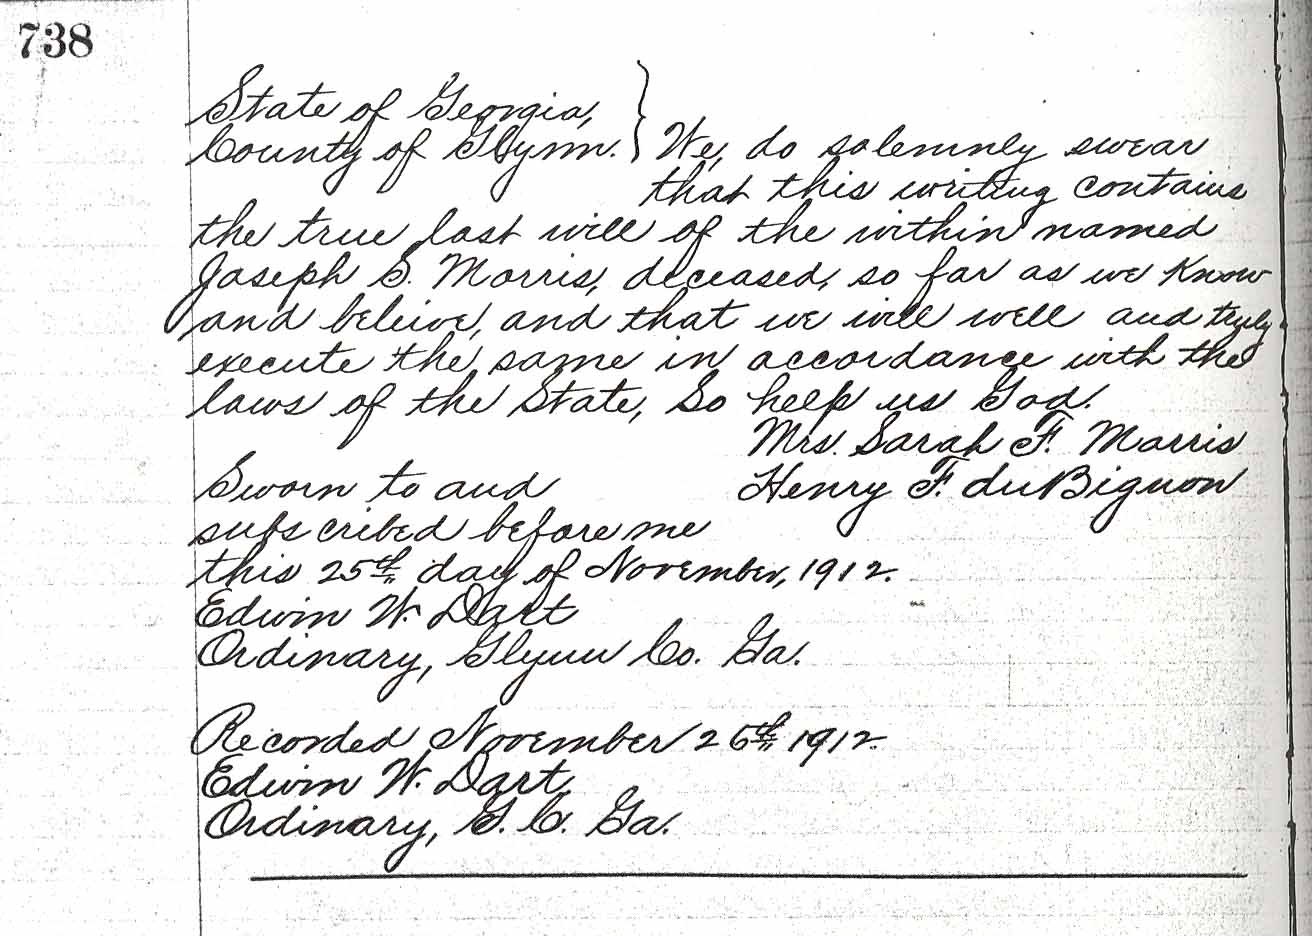 738
State of Georgia,
County of Glynn. } We, do solemnly swear
that this writing contains
the true last will of the within named
Joseph S. Morris, deceased, so far as we know
and beleive, and that we will well and truly
execute the same in accordance with the
laws of the State, So help us God.
Mrs. Sarah F. Morris
Sworn to and Henry F. duBignon
subscribed before me
this 25th day of November, 1912.
Edwin W. Dart
Ordinary, Glynn Co. Ga.
Recorded November 26th 1912.
Edwin W. Dart,
Ordinary, G. C. Ga.